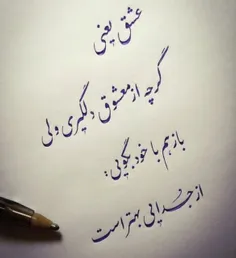 عشق یعنی
گرچه از معشوق دلگیری ولی
بازهم با خود بگویی:
از جدایی بهتر است